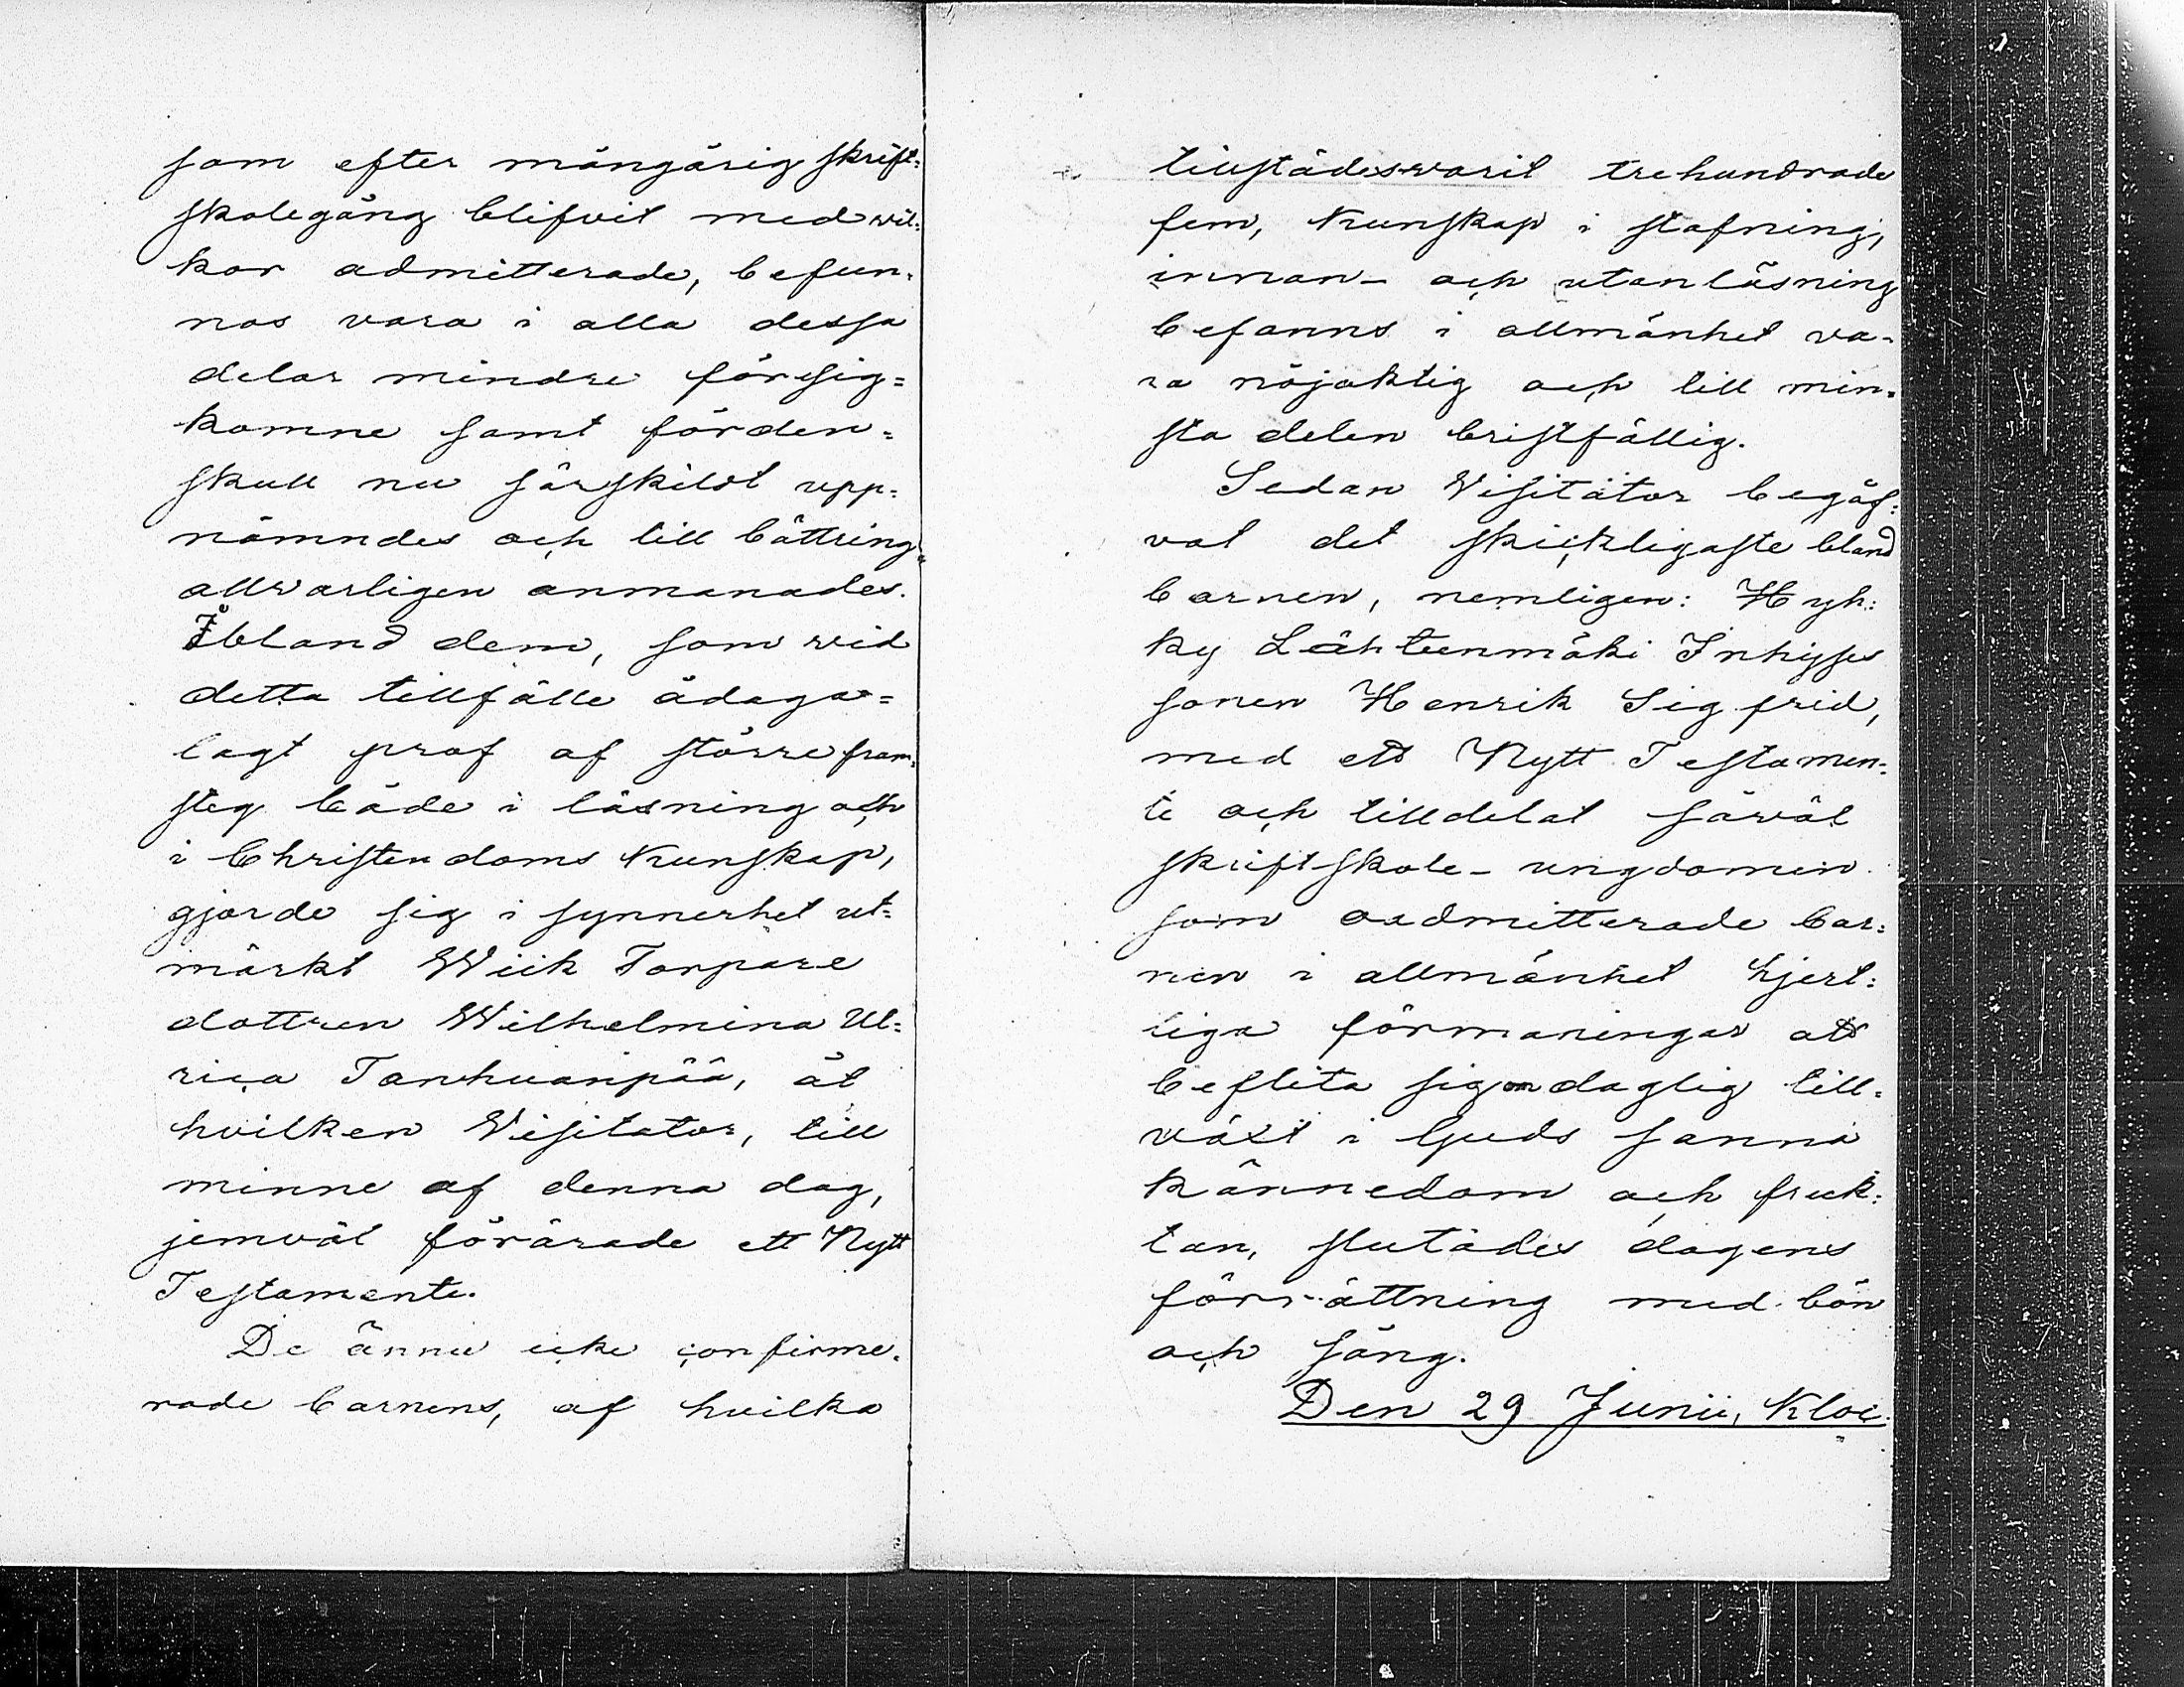 som efter mångårig skrift=
skolegång blifvit med wil=
kor admitterade, befun=
nos vara i alla dessa
delar mindre försig=
komne samt förden=
skull nu särskildt upp=
nämndes och till bättring
allvarligen anmanades.
Ibland dem, som vid
detta tillfälle ådaga=
lagt prof af större fram=
steg både i läsning och
i Christendoms Kunskap,
gjorde sig i synnerhet ut=
märkt Wiik Torpare
dottren Wilhelmina Ul=
rica Tanhuanpää, åt
hvilken Visitator, till
minne af denna dag,
jemväl förärade ett Nytt
Testamente.
De ännu icke confirme=
rade barnens, af hvilka
tillstädesvarit trehundrade
fem, Kunskap i stafning,
innan- och utanläsning
befanns i allmänhet va=
ra nöjaktig och till min=
sta delen bristfällig.
Sedan Visitator begåf=
vat det skickligaste bland
barnen, nemligen: Hyh=
ky Lähteenmäki Inhyses
sonen Henrik Sigfrid,
med ett Nytt Testamen=
te och tilldelat såväl
skriftskole-ungdomen
som oadmitterade bar=
nen i allmänhet hjert=
liga förmaningar att
beflita sig om daglig till=
växt i Guds sanna
kännedom och fruk=
tan, slutades dagens
förrättning med bön
och sång.
Den 29 Junii, Kloc